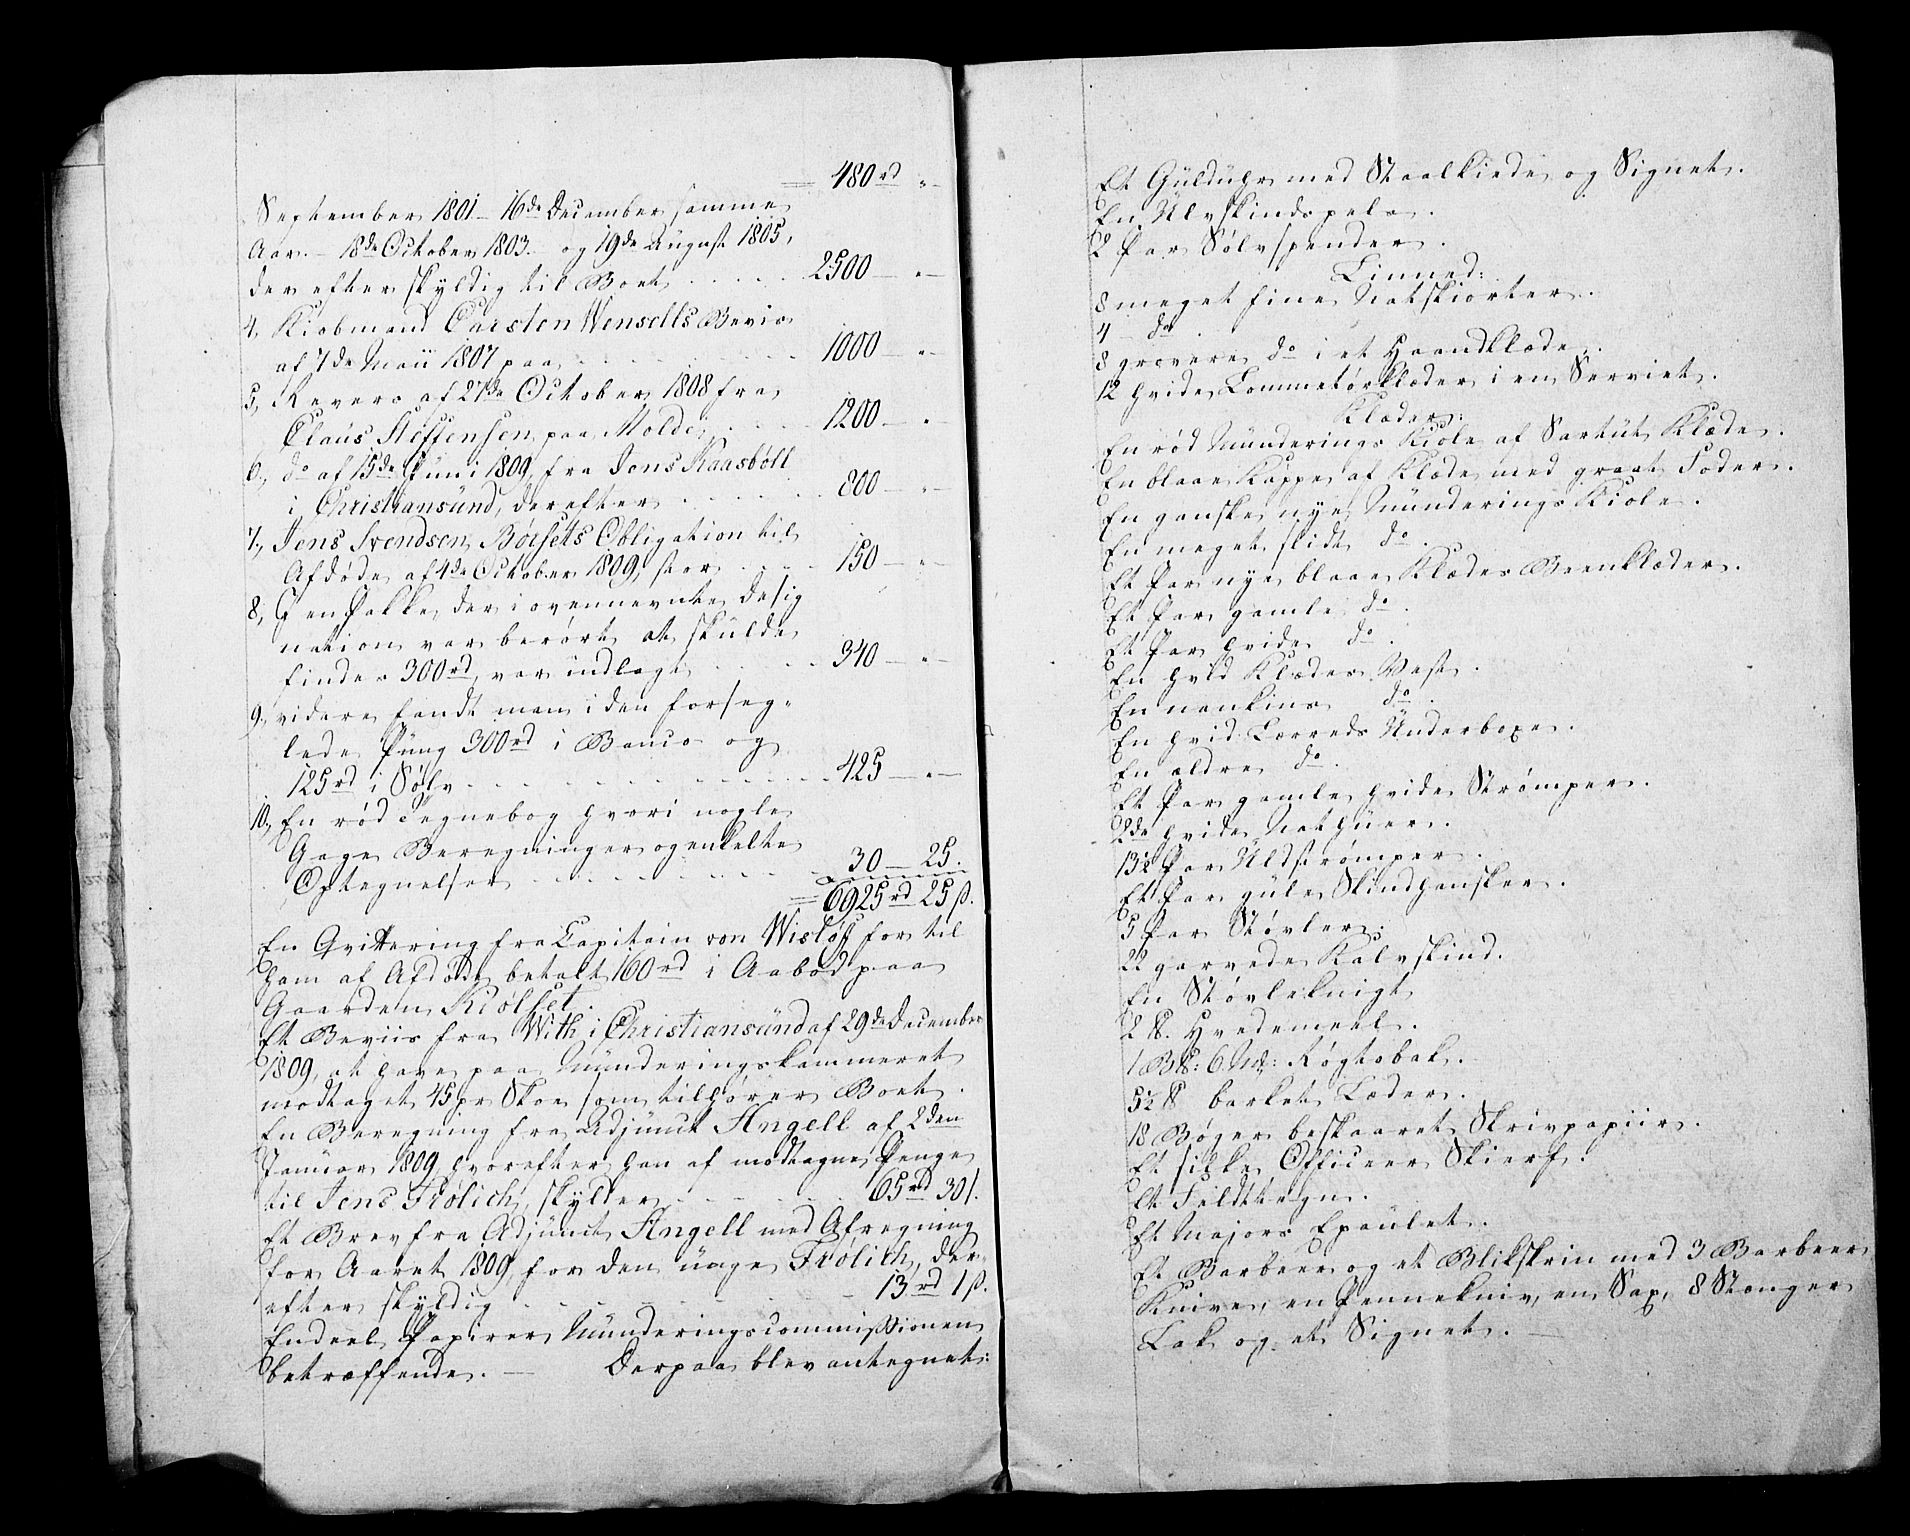 = 480 rd "-
September 1801 - 16de December samme
Aar. - 18de October 1803. og 19de August 1805,
der efter skyldig til Boet . . . . . 2500 — "-
4, Kiøbmand Carsten Wensells Bevis
af 7de Maii 1807 paa . . . . . . 1000 — "-
5, Revers af 27de October 1808 fra
Claus Steffensen paa Molde . . . . 1200 — "-
6, do af 15de Juni 1809, fra Jens Kaasbøll
i Christiansund, derefter . . . . . . 800 — "-
7, Jens Svendsen Børsets Obligation til
Afdøde af 4de October 1809, stor . . . . 150 — "-
8, I en Pakke, der i ovennevnte Desig
nation var berørt at skulde
findes 300 rd, var indlagt . . . . . 340 — "-
9, videre fandt man i den forseg-
lede Pung 300 rd i Banco og
125 rd i Sølv . . . . . . . . . 425 — "-
10, En rød Tegnebog hvori nogle
Gage Beregninger og enkelte
Optegnelser . . . . . . . . 30 — 25.
= 6925 rd 25 ß.
En Qvittering fra Capitain von Wisløff for til
ham af Afdøde betalt 160 rd i Aabod paa
Gaarden Kiølset.
Et Beviis fra With i Christiansund af 29de December
1809, at have paa Munderingskammeret
modtaget 45 pr Skoe som tilhører Boet.
En Beregning fra Adjunct Angell af 2den
Januar 1809, hvorefter han af modtagne Penge
til Jens Frølich, skylder . . . . . 65 rd 30 ß.
Et Brev fra Adjunct Angell med Afregning
for Aaret 1809, for den unge Frølich, der-
efter skyldig . . . . . . . . 13 rd 1 ß.
Endeel Papirer Munderingscommissionen
betræffende. — Derpaa blev antegnet:
Et Gulduhr med Staalkiede og Signet.
En Ulvskindspels.
2 Par Sølvspender.
Linned:
8 meget fine Natskiorter.
4 - do.
8 grovere do i et Haandklæde.
12 hvide Lommetørklæder i en Serviet.
Klæder:
En rød Munderings Kiole af Sartut Klæde.
En blaae Kappe af Klæde med graat Foder.
En ganske nye Munderings Kiole.
En meget slidt do.
Et Par nye blaae Klædes Beenklæder.
Et Par gamle do.
Et Par hvide do.
En hvid Klædes Vest.
En nankins do.
En hvid Lærreds Underboxe.
En ældre do.
Et Par gamle hvide Strømper.
2de hvide Nathuer.
13½ Par Uldstrømper.
Et Par gule Skindhansker.
5 Par Støvler.
22 garvede Kalvskind.
En Støvleknigt
2 ℔. Hvedemeel.
1 B℔: 6 M[k]: Røgtobak.
5½ ℔ barket Læder.
18 Bøger beskaaret Skrivpapiir.
Et silke Officeer Skierf.
Et Feldttegn.
Et Majors Epaulet.
Et Barbeer og et Blikskrin med 3 Barbeer
Knive, en Pennekniv, en Sax, 8 Stænger
Lak og et Signet. —